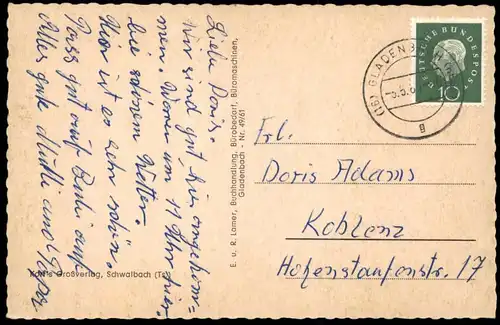 Liebe Doris.
Wir sind gut hier angekom-
men. Waren um 11 Uhr hier
bei schönem Wetter.
Hier ist es sehr schön.
Pass gut auf auf
Alles gute Mutti und
E. u. R. Lamer, Buchhandlung, Bürobedarf, Büromaschinen,
Gladenbach - Nr. 49/61
Karl's Großverlag, Schwalbach (Ts)
DEUTSCHE BUNDESPOST
10
(16) GLADENBACH
g
Frl.
Doris Adams
Koblenz
Hohenstaufenstr. 17